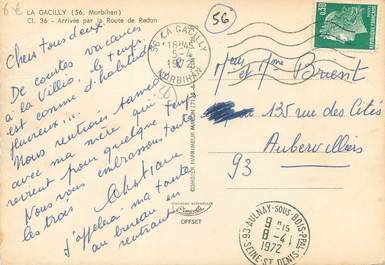 6€
LA GACILLY (56. Morbihan)
Cl. 36 - Arrivée par la Route de Redon
Chers tous deux
De courtes vacances
à la Villa, le temps
est comme d'habitude
pluvieux...
Nous rentrons samedi
avec ma mère qui
revient pour quelque temps
Nous vous embrassons toutes
les trois
J'appellerai ma tante
au bureau en
rentrant
56
LA GACILLY
18H45
5-4
1972
MORBIHAN
56
0,30
Mr et Mme Brient
135 rue des Cités
Aubervilliers
93
COMBIER IMPRIMEUR MACON
OFFSET
93 AULNAY-SOUS-BOIS PPAL
9H15
8-4
1972
SEINE-ST DENIS